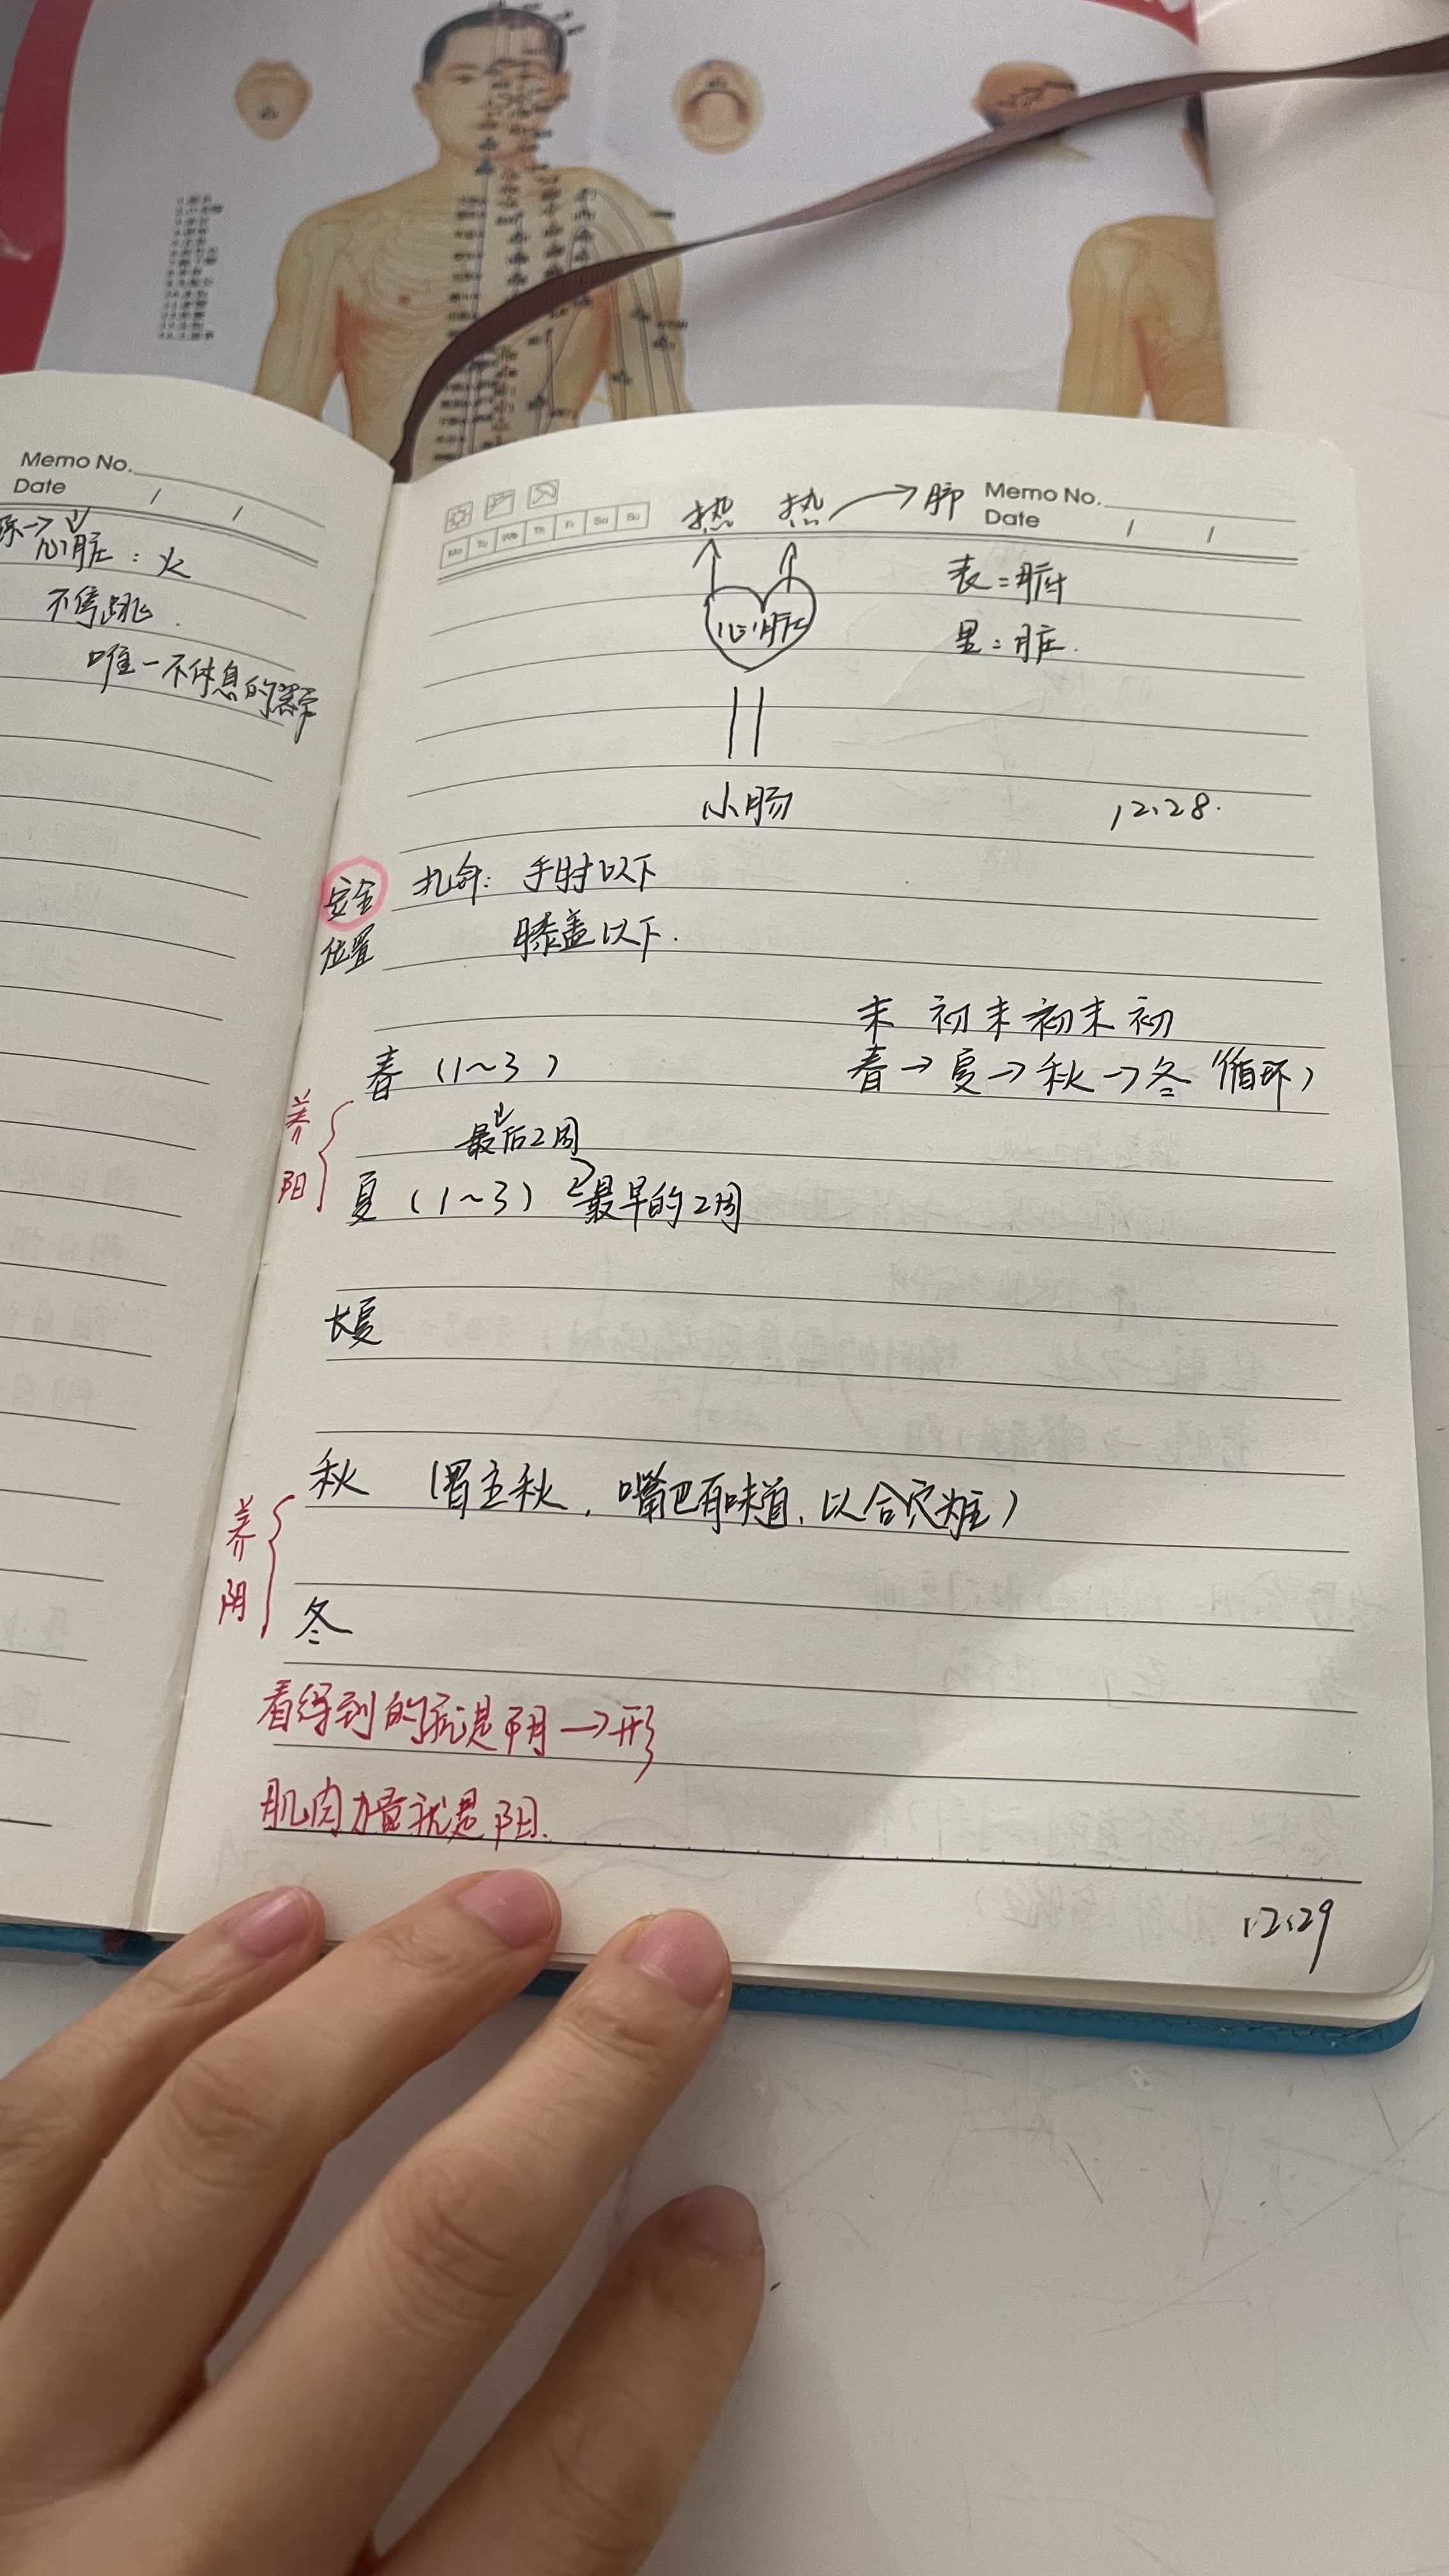 Memo No.
Date / /
心脏：火
不停跳.
唯一不休息的器官
Mo Tu We Th Fr Sa Su
Memo No.
Date / /
热 热 → 肺
表=腑
里=脏.
心脏
小肠
12.28.
安全
位置
扎针: 手肘以下
膝盖以下.
末 初末初末初
春→夏→秋→冬(循环)
养
阳
春 (1~3)
最后2周
夏 (1~3) 最早的2周
长夏
养
阴
秋 (胃主秋, 嘴巴有味道, 以合穴为主)
冬
看得到的就是阴→形
肌肉力量就是阳.
12.29